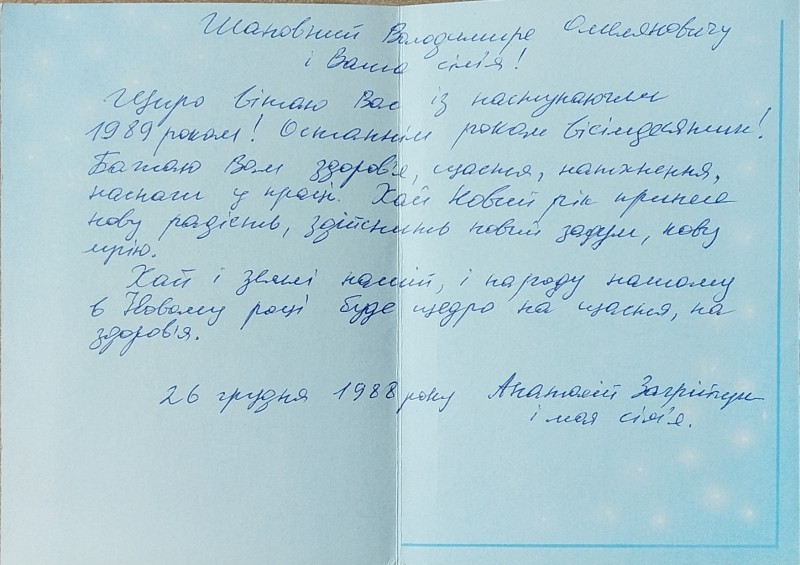 Шановний Володимире Омеляновичу
і Ваша сім'я!
Щиро вітаю Вас із наступаючим
1989 роком! Останнім роком вісімдесятих!
Бажаю Вам здоров'я, щастя, натхнення,
наснаги у праці. Хай Новий рік принесе
нову радість, здійснить новий задум, нову
мрію.
Хай і землі нашій, і народу нашому
в Новому році буде щедро на щастя, на
здоров'я.
26 грудня 1988 року Анатолій
і моя сім'я.